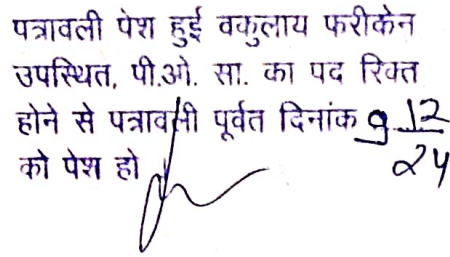 पत्रावली पेश हुई वकुलाय फरीकेन
उपस्थित, पी.ओ. सा. का पद रिक्त
होने से पत्रावली पूर्वत दिनांक 9 12/24
को पेश हो